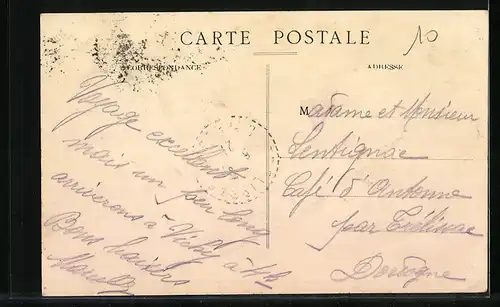 CARTE POSTALE
10
CORRESPONDANCE
ADRESSE
Voyage excellent
mais un peu long
arriverons à Vichy à 4h
Bons baisers
Madame et Monsieur
Lentignac
Café d'Antonne
par Trélissac
Dordogne